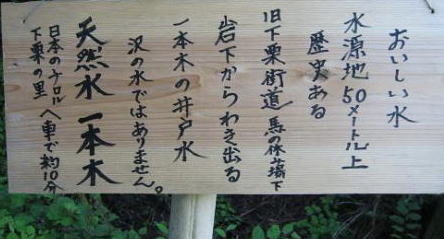 おいしい水
水源地50メートル上
歴史ある
旧下栗街道馬の休場下
岩下からわき出る
一本木の井戸水
沢の水ではありません。
天然水一本木
日本のチロル
下栗の里
へ車で約10分